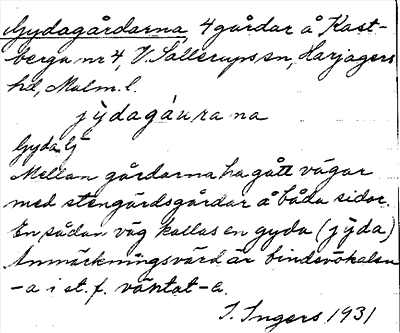 Gydagårdarna, 4 gårdar å Kast-
berga nr 4, V. Sallerups sn, Harjagers
hd, Malm. l.
jỳdagáu̦ra na
Gyda, lj
Mellan gårdarna ha gått vägar
med stengärdsgårdar å båda sidor.
En sådan väg kallas en gyda (jỳda)
Anmärkningsvärd är bindevokalen
-a i st. f. väntat -e.
I. Ingers 1931